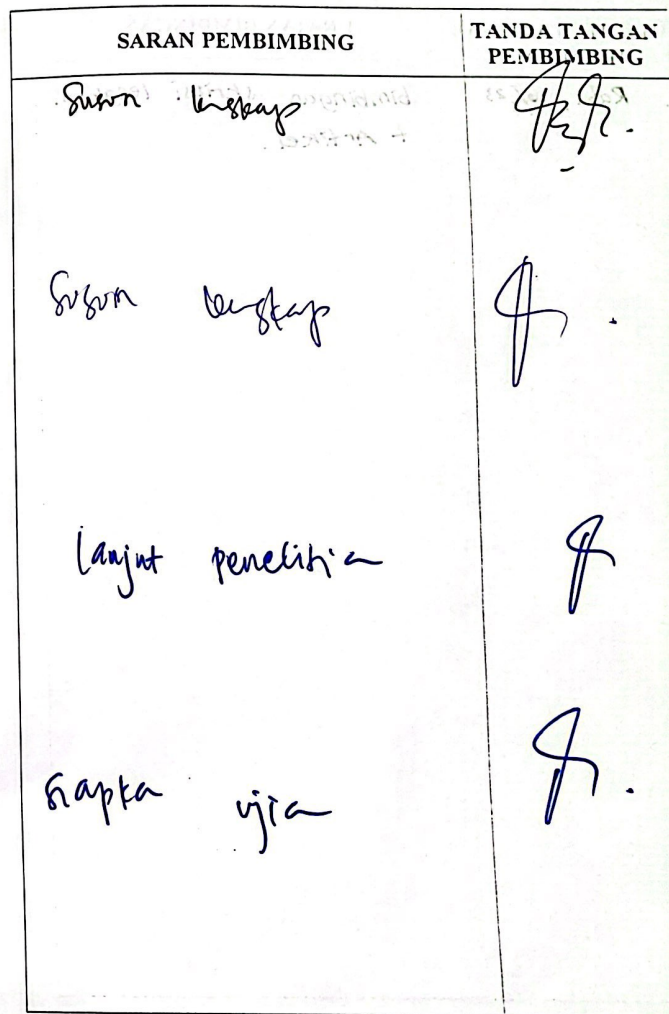 SARAN PEMBIMBING
TANDA TANGAN
PEMBIMBING
Susun lengkap
Susun lengkap
lanjut penelitian
siapka ujian